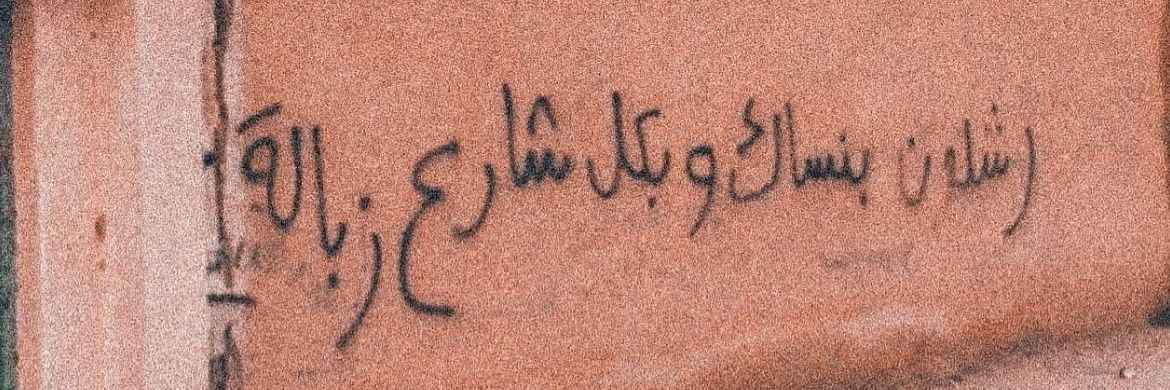 شلون بنساك وبكل شارع زبالة